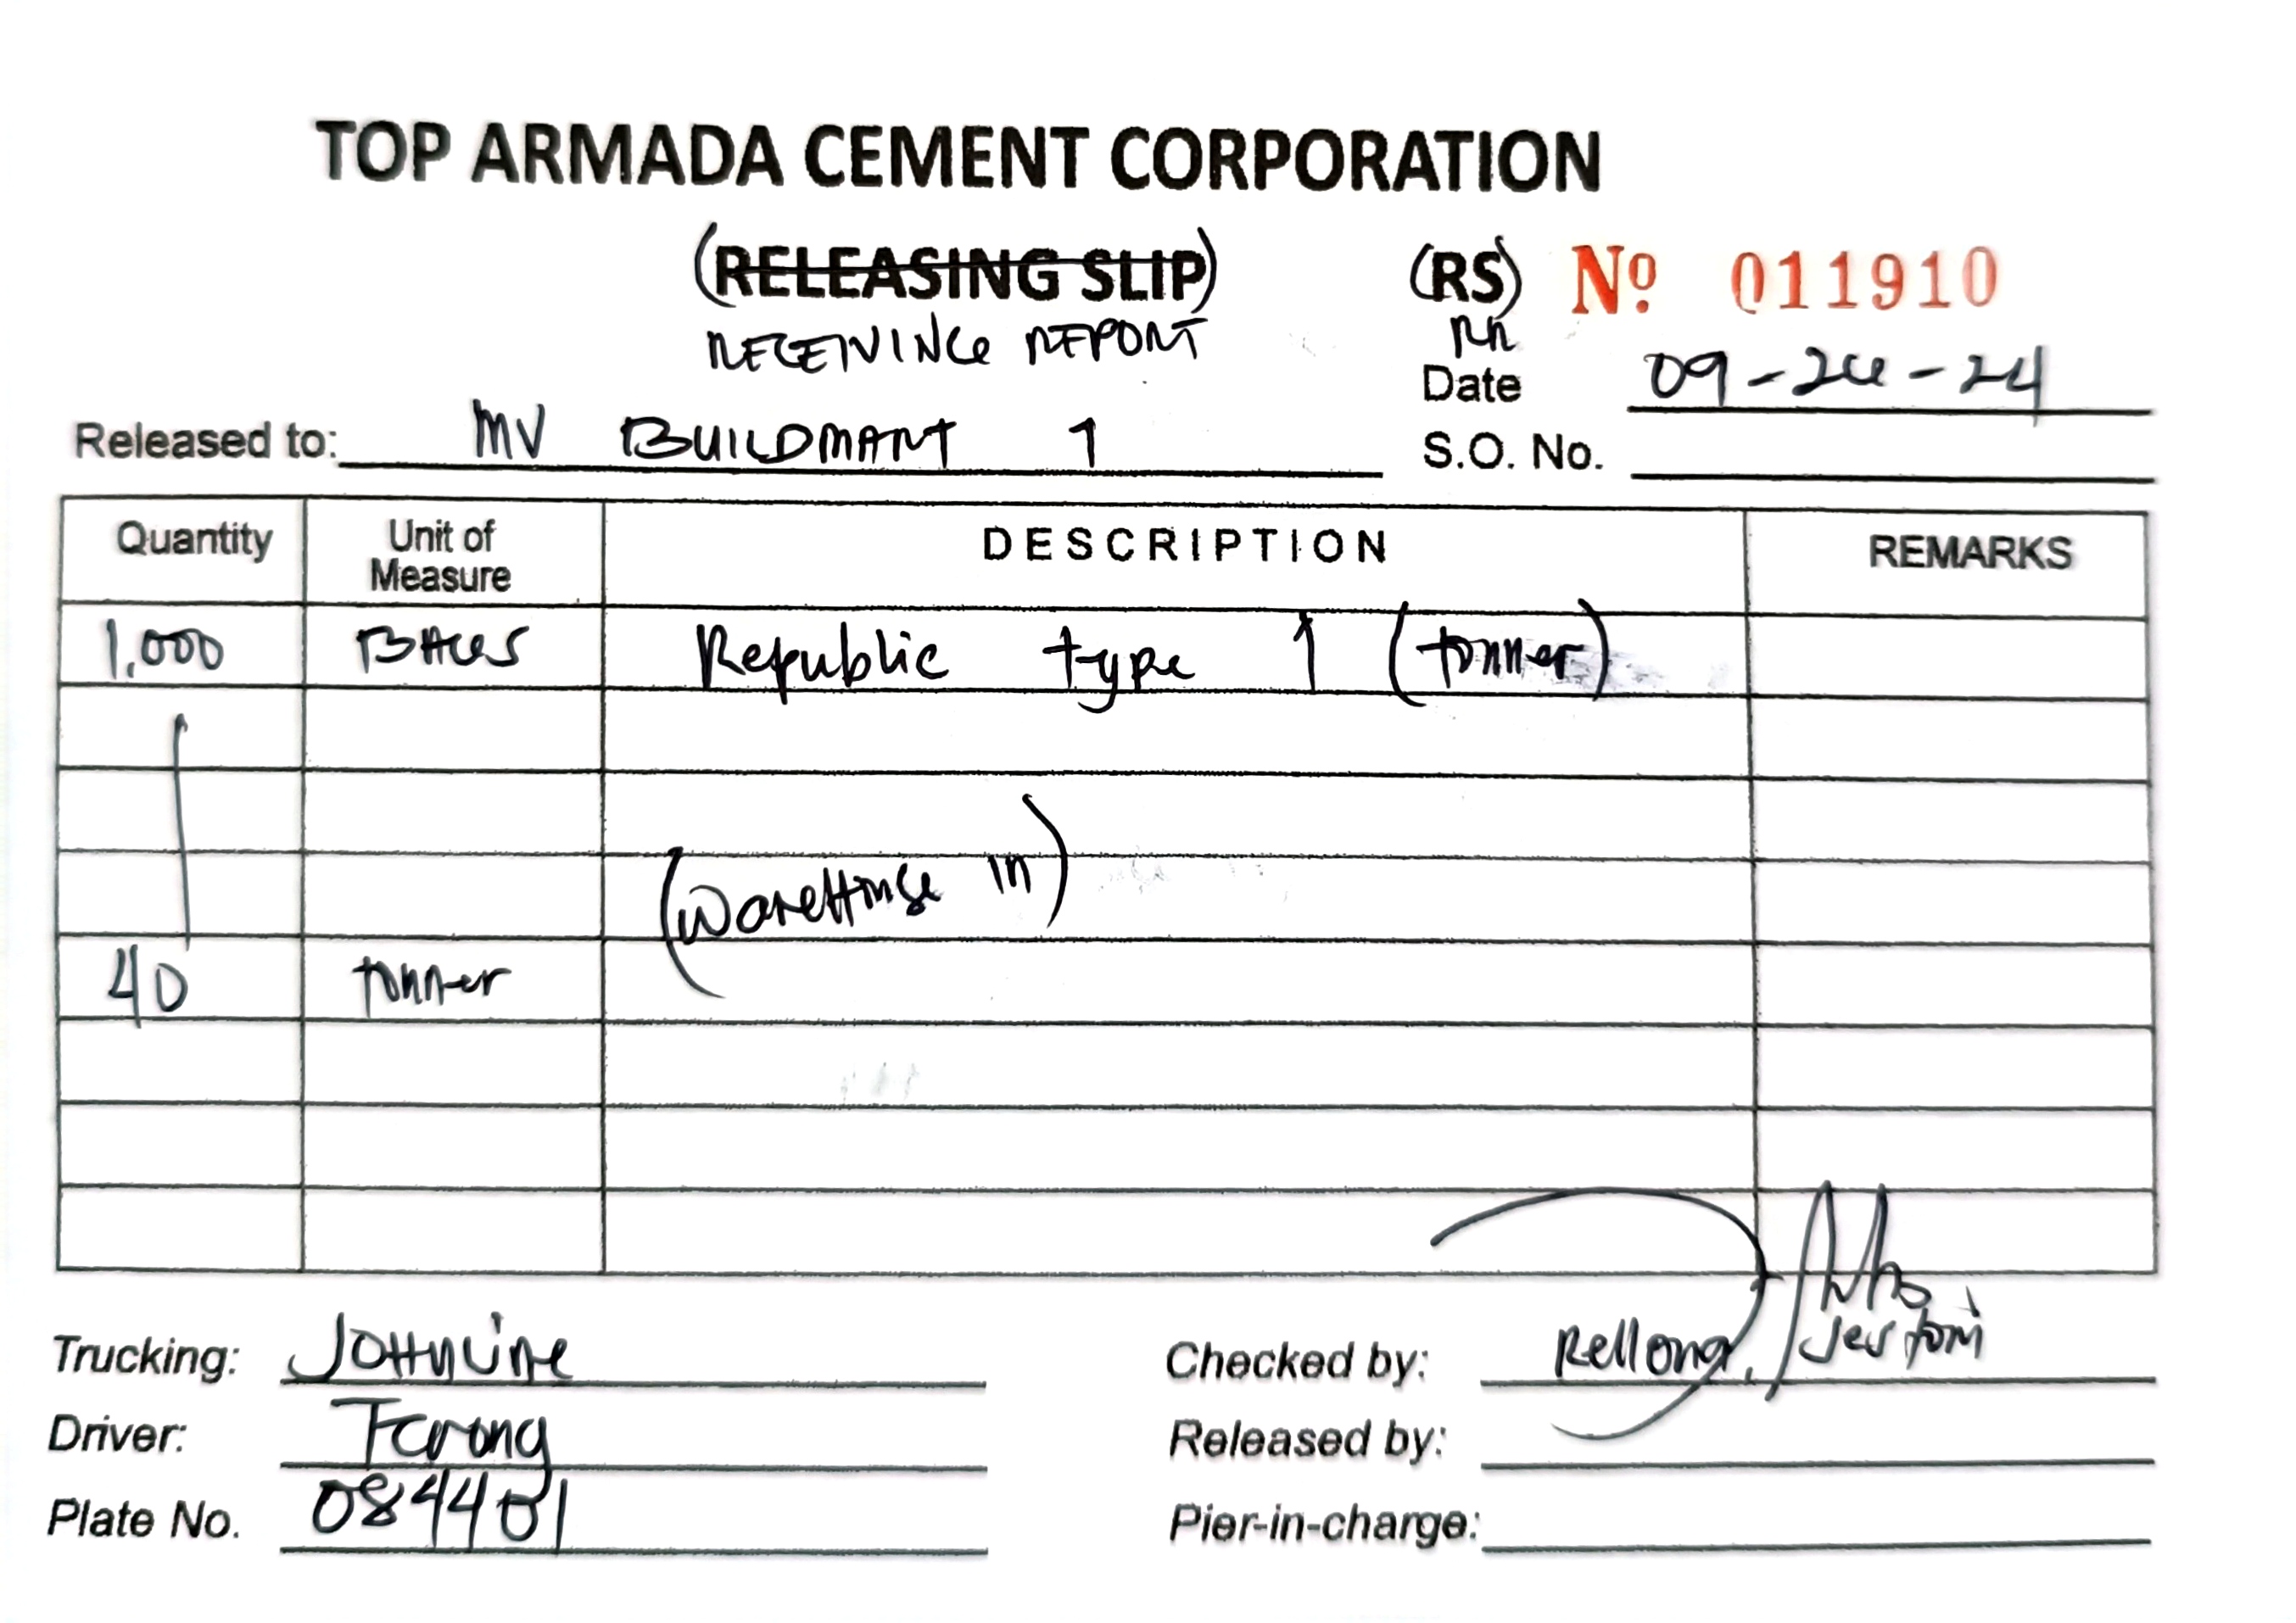 TOP ARMADA CEMENT CORPORATION
(RELEASING SLIP) (RS) Nº 011910
RECEIVING REPORT RR
Date 09-24-24
Released to: MV BUILDMART 1 S.O. No.
Quantity Unit of Measure DESCRIPTION REMARKS
1,000 BAGS Republic type 1 (tonner)
(WareHouse in)
40 tonner
Trucking: JOHNLINE Checked by: Rellong, Jestoni
Driver:
Released by:
Plate No. Pier-in-charge: